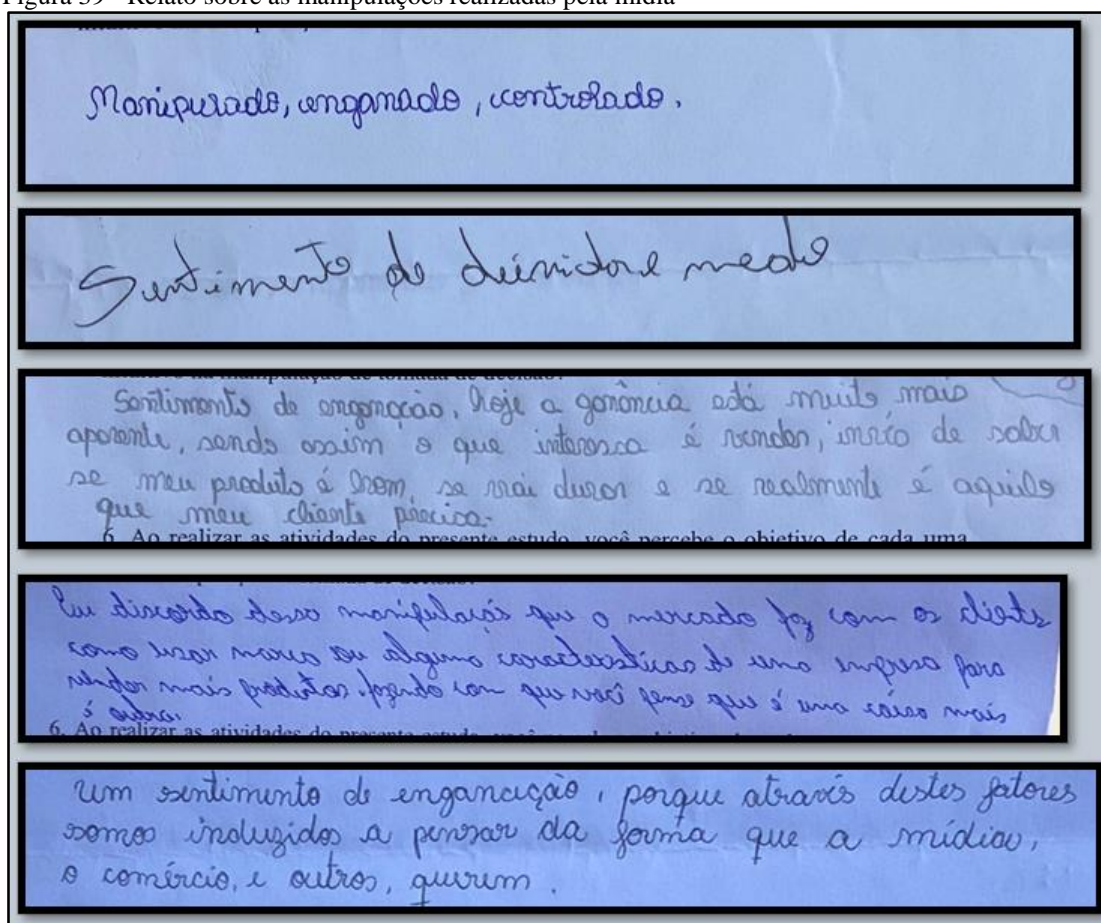 Figura 39 - Relato sobre as manipulações realizadas pela mídia
Manipurado, enganado, controlado.
Sentimento de e medo
na manipulação de tomada de decisão?
Sentimento de enganação, hoje a ganância está muito mais
aparente, sendo assim o que interessa é vender, invés de saber
se meu produto é bom, se vai durar e se realmente é aquilo
que meu cliente precisa.
6. Ao realizar as atividades do presente estudo, você percebe o objetivo de cada uma
Eu discordo dessa manipulação que o mercado faz com os
como usar marca ou alguma características de uma empresa para
vender mais produtos, fazendo com que você pense que é uma coisa mais
é outra.
6. Ao realizar as atividades do presente estudo,
Um sentimento de enganação, porque através destes fatores
somos induzidos a pensar da forma que a mídia,
o comércio, e outros, querem.